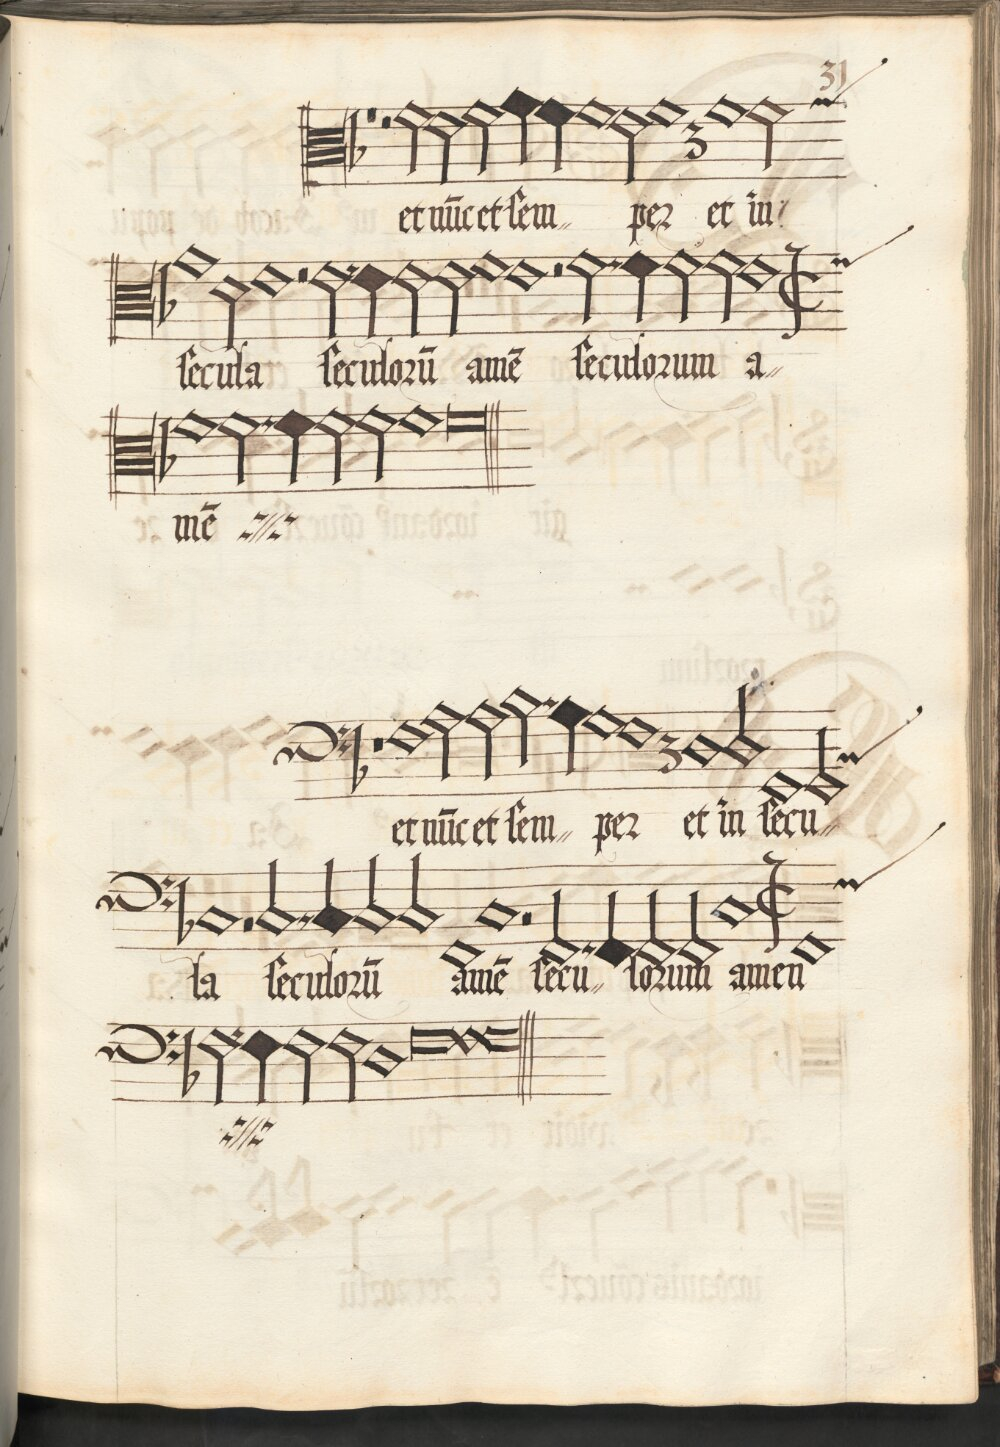 31
3
et nūc et sem〃 per et in
secula seculorū amē seculorum a〃
mē
3
et nūc et sem〃 per et in secu〃
la seculorū amē secu〃 lorum amen